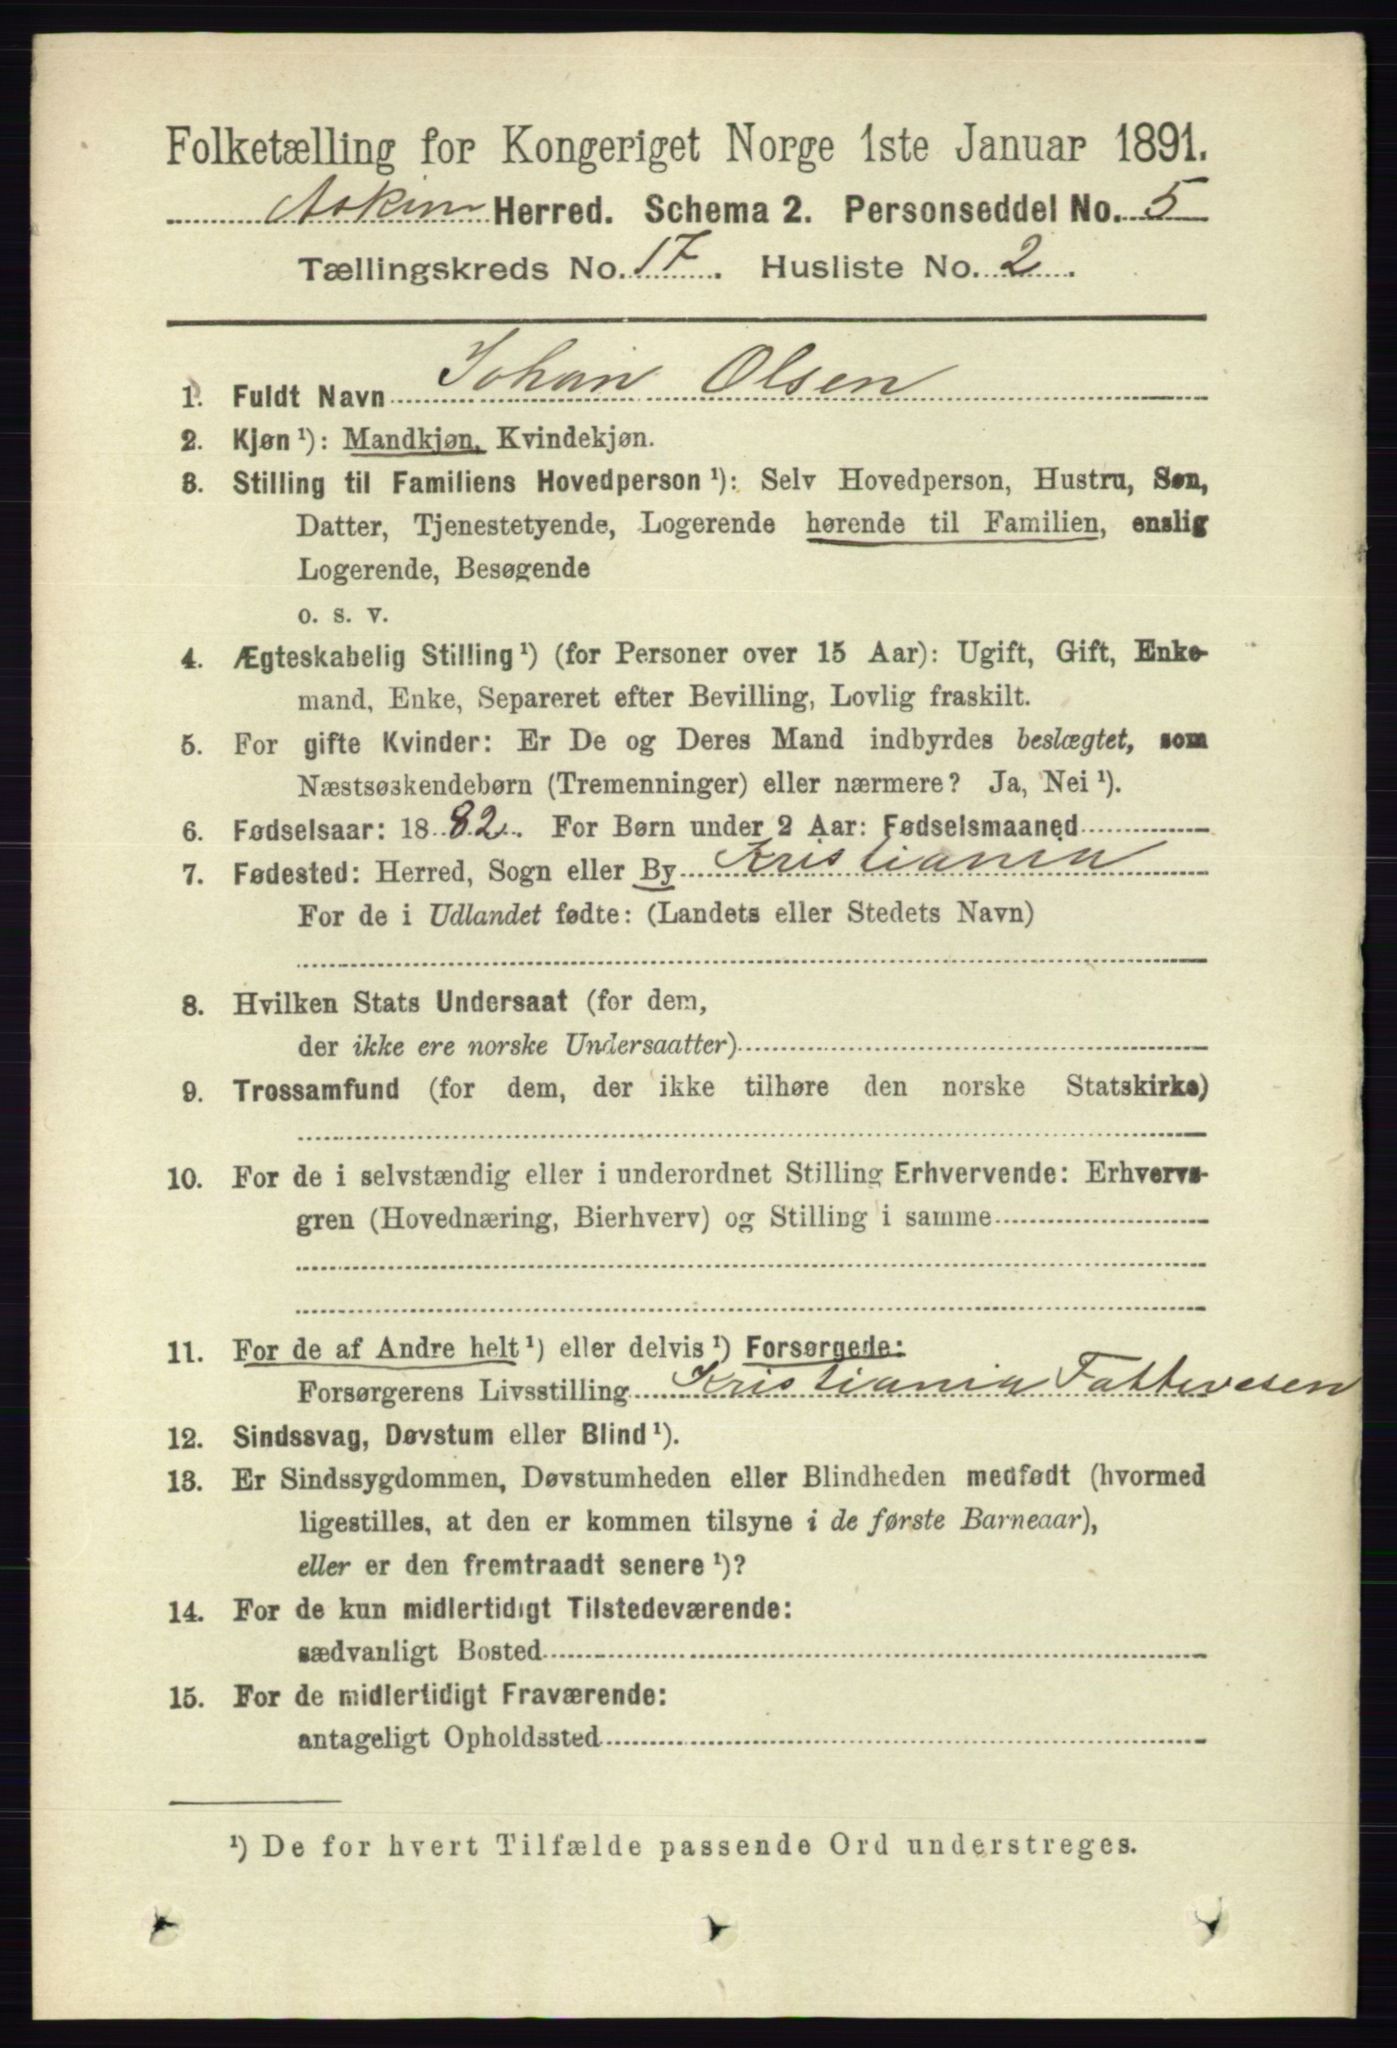 Folketælling for Kongeriget Norge 1ste Januar 1891.
Askim Herred. Schema 2. Personseddel No. 5
Tællingskreds No. 17. Husliste No. 2.
1. Fuldt Navn Johan Olsen
2. Kjøn ¹): Mandkjøn, Kvindekjøn.
3. Stilling til Familiens Hovedperson ¹): Selv Hovedperson, Hustru, Søn,
Datter, Tjenestetyende, Logerende hørende til Familien, enslig
Logerende, Besøgende
o. s. v.
4. Ægteskabelig Stilling ¹) (for Personer over 15 Aar): Ugift, Gift, Enke-
mand, Enke, Separeret efter Bevilling, Lovlig fraskilt.
5. For gifte Kvinder: Er De og Deres Mand indbyrdes beslægtet, som
Næstsøskendebørn (Tremenninger) eller nærmere? Ja, Nei ¹).
6. Fødselsaar: 1882. For Børn under 2 Aar: Fødselsmaaned
7. Fødested: Herred, Sogn eller By Kristiania
For de i Udlandet fødte: (Landets eller Stedets Navn)
8. Hvilken Stats Undersaat (for dem,
der ikke ere norske Undersaatter)
9. Trossamfund (for dem, der ikke tilhøre den norske Statskirke)
10. For de i selvstændig eller i underordnet Stilling Erhvervende: Erhvervs-
gren (Hovednæring, Bierhverv) og Stilling i samme
11. For de af Andre helt ¹) eller delvis ¹) Forsørgede:
Forsørgerens Livsstilling Kristiania Fattivesen
12. Sindssvag, Døvstum eller Blind ¹).
13. Er Sindssygdommen, Døvstumheden eller Blindheden medfødt (hvormed
ligestilles, at den er kommen tilsyne i de første Barneaar),
eller er den fremtraadt senere ¹)?
14. For de kun midlertidigt Tilstedeværende:
sædvanligt Bosted
15. For de midlertidigt Fraværende:
antageligt Opholdssted
¹) De for hvert Tilfælde passende Ord understreges.